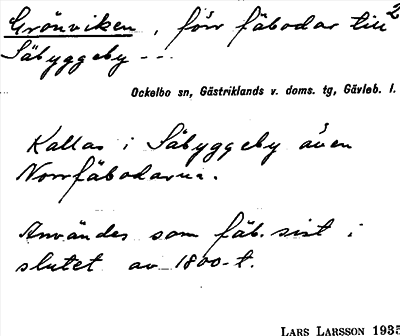 Grönviken, förr fäbodar till 2
Säbyggeby ---
Ockelbo sn, Gästriklands v. doms. tg, Gävleb. l.
Kallas i Säbyggeby även
Norrfäbodarna.
Användes som fäb. sist i
slutet av 1800-t.
LARS LARSSON 1935